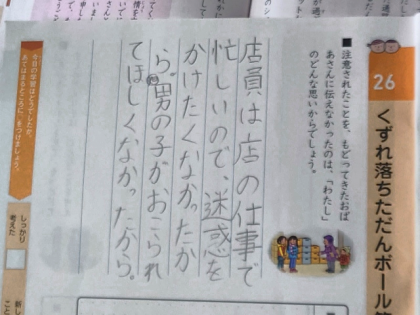 26
くずれ落ちただんボール
■注意されたことを、もどってきたおば
あさんに伝えなかったのは、「わたし」
のどんな思いからでしょう。
店員は店の仕事で
忙しいので、迷惑を
かけたくなかったか
ら。男の子がおこられ
てほしくなかったから。
今日の学習はどうでしたか。
あてはまるところに、をつけましょう。
しっかり
考えた